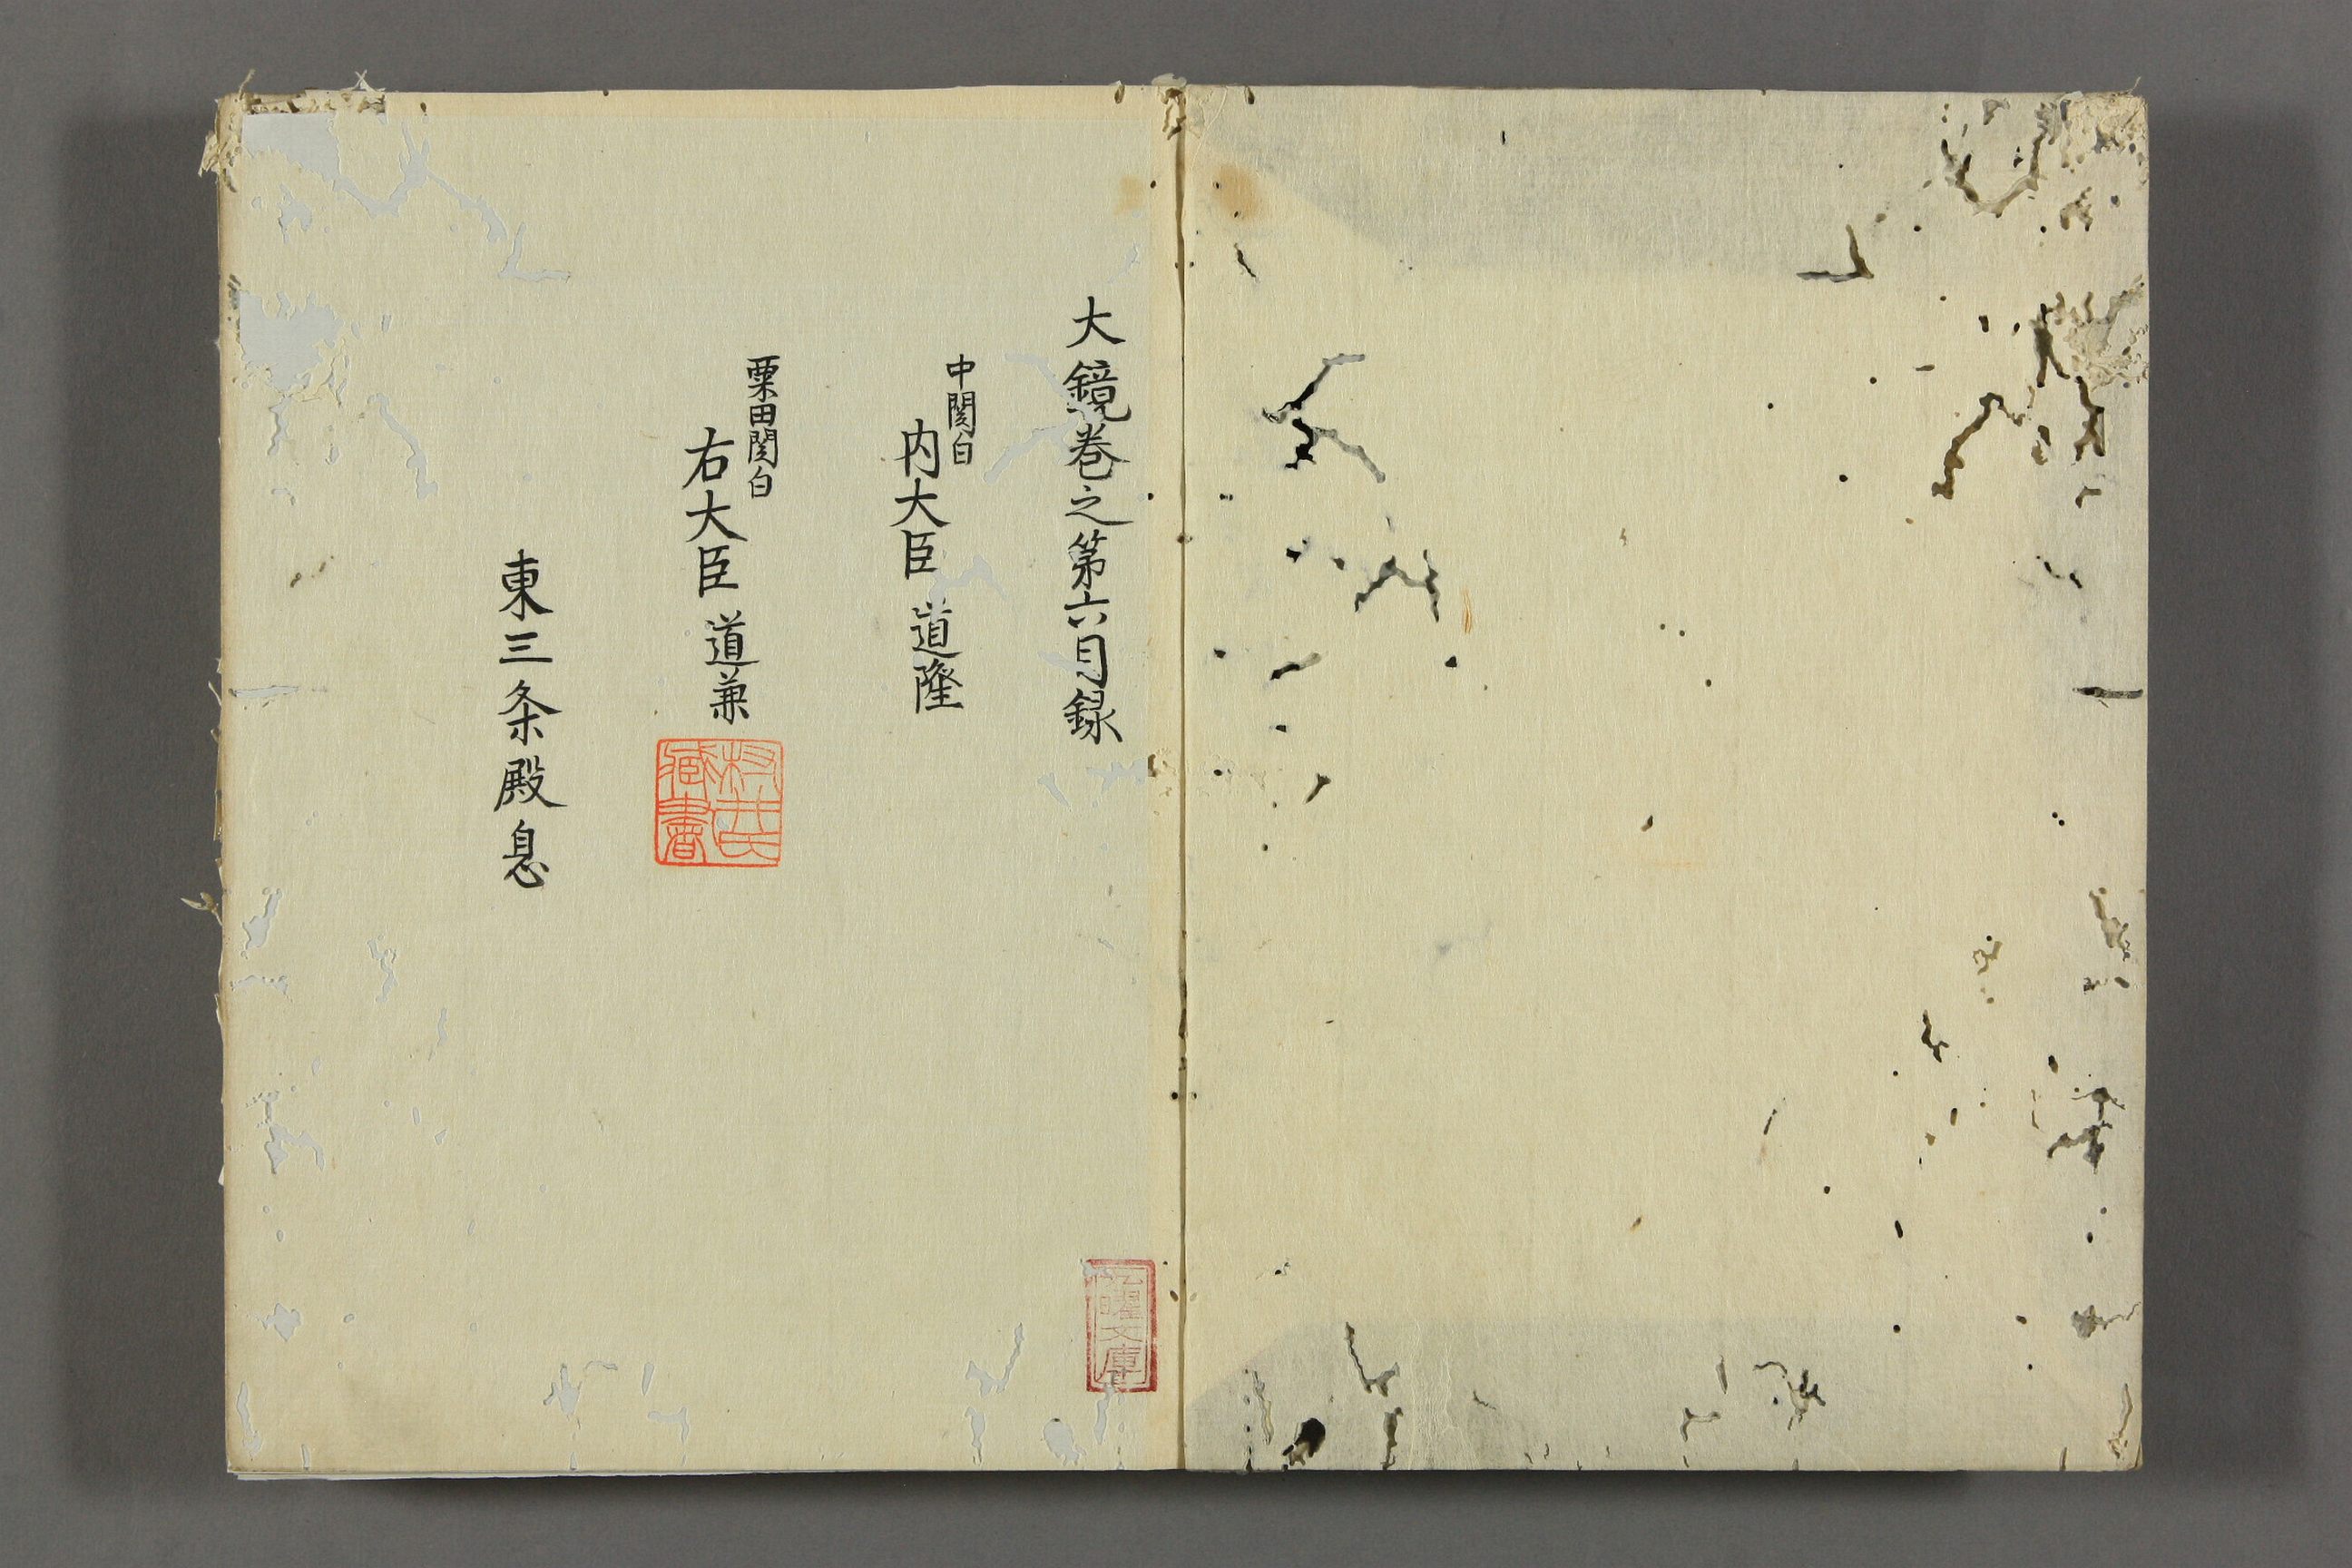 大鏡巻之第六目録
中関白
内大臣 道隆
粟田関白
右大臣 道兼
東三条殿息
村井氏
蔵書
曜文庫